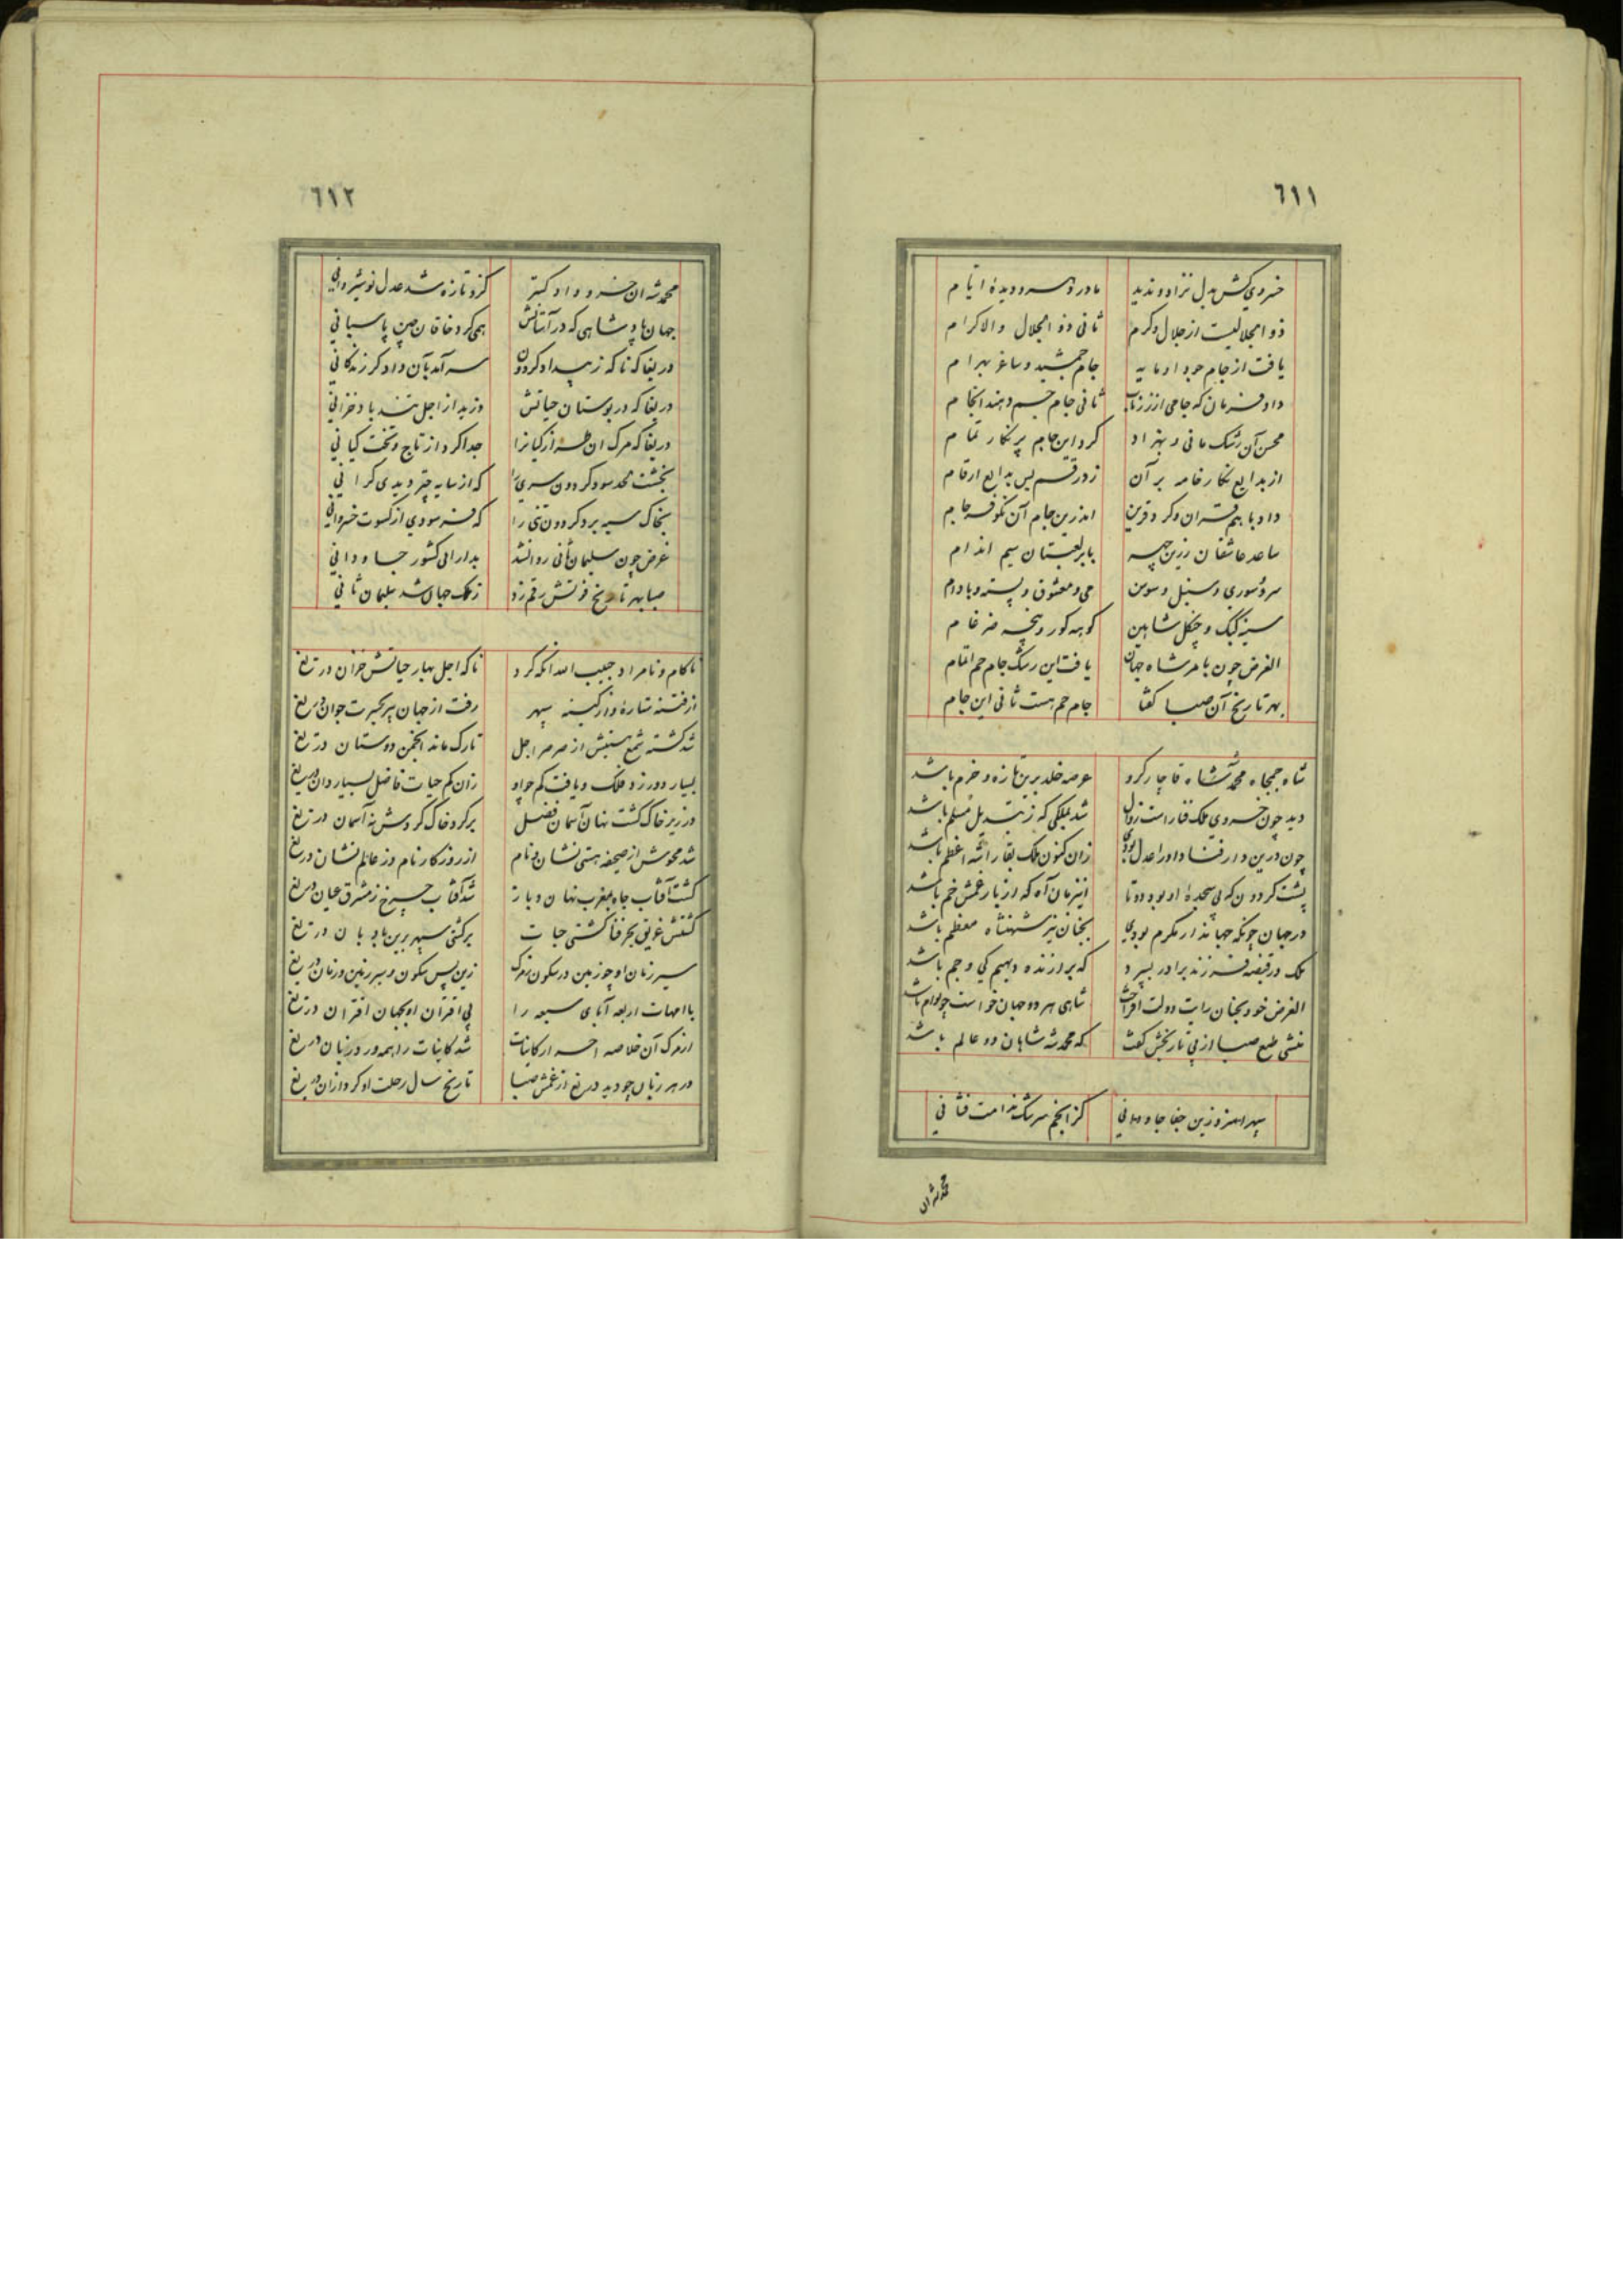 ٦١١
خسروی کش بدل نزاد و ندید مادر دهر و دیدهٔ ایام
ذو الجلالیست از جلال و کرم ثانی ذو الجلال والاکرام
یافت از جام جود او مایه جام جمشید و ساغر بهرام
داد فرمان که جامی از زر ناب ثانی جام جم دهند انجام
محسن آن رشک مانی و بهزاد کرد این جام پر نگار تمام
از بدایع نگار خامه بر آن زد رقم بس بدایع ارقام
داد با هم قران و کرد قرین اندرین جام آن نکو فرجام
ساعد عاشقان زرین چهر با بر لعبتان سیم اندام
سرو سوری و سنبل و سوسن می و معشوق و پسته و بادام
سینه کبک و چنگل شاهین کوهه کور و پنجه ضرغام
الغرض چون بامر شاه جهان یافت این رشک جام جم اتمام
بهر تاریخ آن صبا گفتا جام جم هست ثانی این جام
شاه جمجاه محمد شه قاجار کزو عرصه خلد برین تازه و خرم باشد
دید چون خسروی ملک فنا راست زوال شد بملکی که ز تبدیل مسلم باشد
چون درین دار فنا داور اعدل بودی زان کنون ملک بقا را شه اعظم باشد
پشت گردون که پی سجدهٔ او بود دوتا این زمان آه که از بار غمش خم باشد
در جهان چونکه جهاندار مکرم بودی بجنان نیز شهنشاه معظم باشد
ملک در قبضه فرزند برادر بسپرد که برازنده دیهیم کی و جم باشد
الغرض خود بجنان رایت دولت افراخت شاهی هر دو جهان خواست چو توام باشد
منشی طبع صبا از پی تاریخش گفت که محمد شه شاهان دو عالم باشد
سپهرا زین جفا جاودانی کز انجم سرشک ندامت فشانی
محمد شه ان
٦١٢
محمد شه ان خسرو دادگستر کزو تازه شد عدل نوشیروانی
جهان پادشاهی که در آستانش همی کرد خاقان چین پاسبانی
دریغا که ناگه ز بیداد گردون سر آمد بآن دادگر زندگانی
دریغا که در بوستان حیاتش وزید از اجل تند باد خزانی
دریغا که مرگ ان سرافراز کیانرا جدا کرد از تاج و تخت کیانی
بخشت لحد سود گردون سری را که از سایه چتر دیدی گرانی
بخاک سیه برد گردون تنی را که فرسودی از کسوت خسروانی
غرض چون سلیمان ثانی روانشد بدارائی کشور جاودانی
صبا بهر تاریخ فوتش رقم زد ز ملک جهان شد سلیمان ثانی
ناکام و نامراد حبیب الله آنکه کرد ناگه اجل بهار حیاتش خزان دریغ
از فتنه ستاره و از کینه سپهر رفت از جهان پیر بحسرت جوان دریغ
شد کشته شمع هستیش از صرصر اجل تارک ماند انجمن دوستان دریغ
بسیار دور زد فلک و یافت کم چو او زان کم حیات فاضل بسیار دان دریغ
در زیر خاک گشت نهان آسمان فضل بر گرد خاک گردش نه آسمان دریغ
شد محوش از صحیفه هستی نشان و نام از روزگار نام وز عالم نشان دریغ
گشت آفتاب جاه بمغرب نهان و باز شد آفتاب چرخ ز مشرق عیان دریغ
گشتش غریق بحر فنا کشتی حیات بر کشتی سپهر برین بادبان دریغ
سیر زمان او چو زمین در سکون ز مرگ زین پس سکون و سیر زمین و زمان دریغ
با امهات اربعه آبای سبعه را بی اقتران او بجهان اقتران دریغ
از مرگ آن خلاصه کاینات شد کاینات را همه ورد زبان دریغ
در هر زبان چو دید دریغ از غمش صبا تاریخ سال رحلت او کرد از ان دریغ